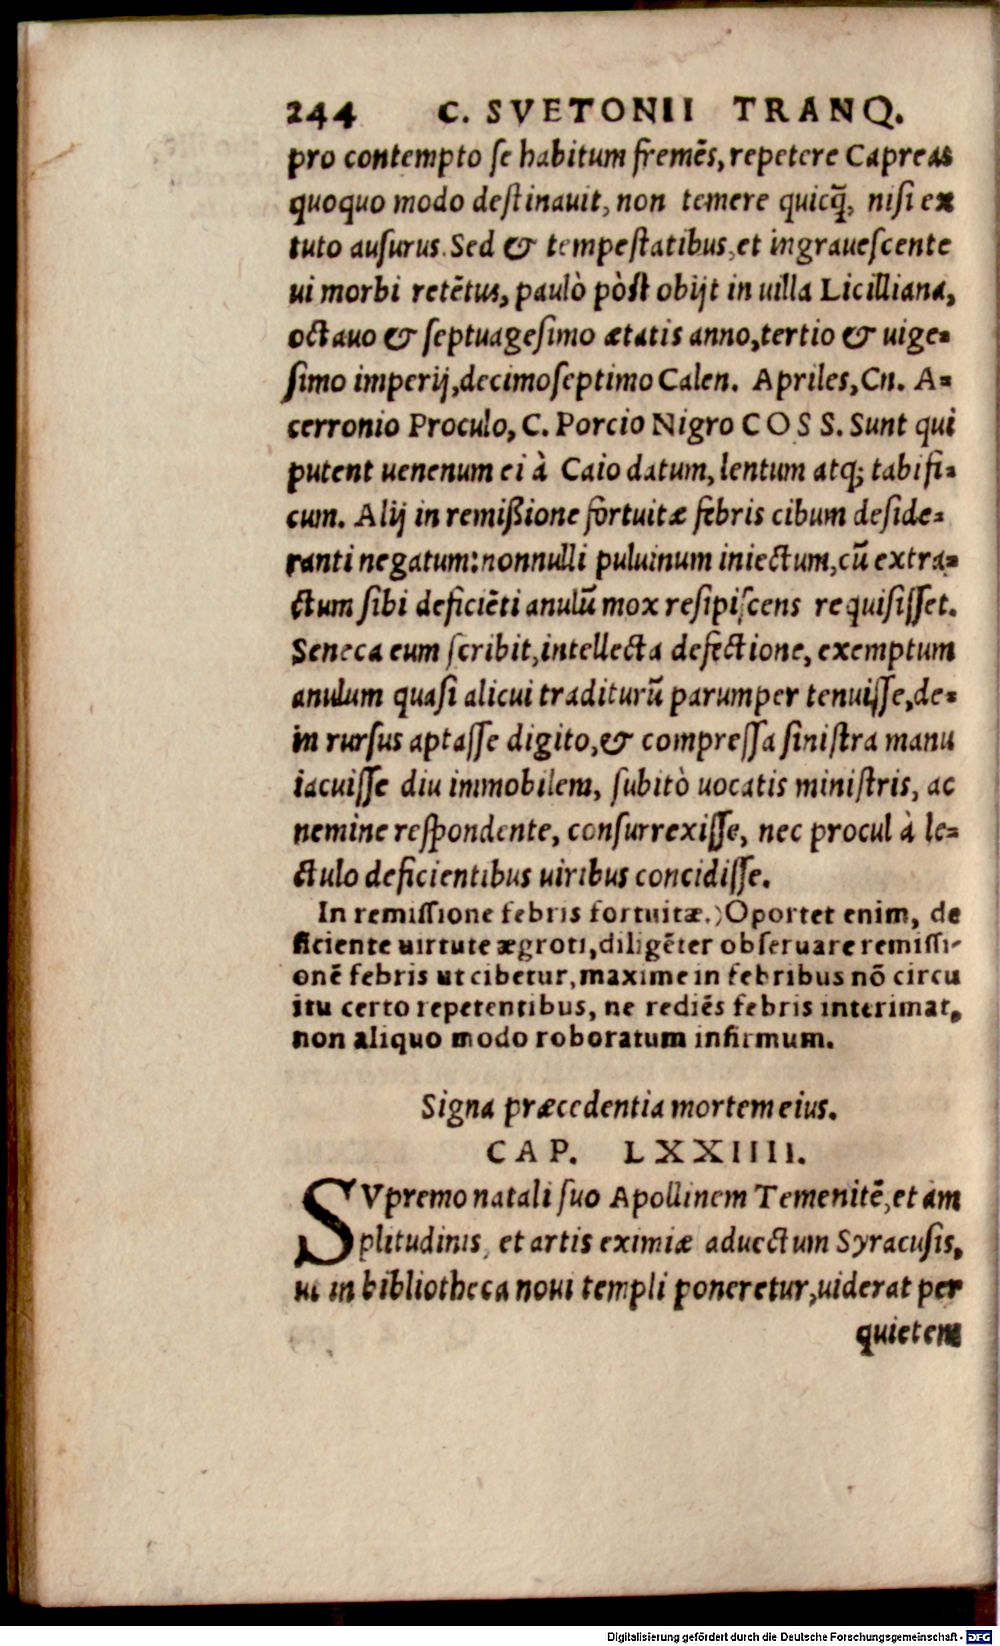 244 C. SVETONII TRANQ.
pro contempto ſe habitum fremẽs, repetere Capreas
quoquo modo deſtinauit, non temere quicq̃; niſi ex
tuto auſurus. Sed & tempeſtatibus, et ingraueſcente
ui morbi retẽtus, paulò pòſt obijt in uilla Licilliana,
octauo & ſeptuageſimo ætatis anno, tertio & uige-
ſimo imperij, decimoſeptimo Calen. Apriles, Cn. A-
cerronio Proculo, C. Porcio Nigro COSS. Sunt qui
putent uenenum ei à Caio datum, lentum atq; tabifi-
cum. Alij in remißione fortuitæ febris cibum deſide-
ranti negatum: nonnulli puluinum iniectum, cũ extra-
ctum ſibi deficiẽti anulũ mox reſipiſcens requiſiſſet.
Seneca eum ſcribit, intellecta defectione, exemptum
anulum quaſi alicui traditurũ parumper tenuiſſe, de-
in rurſus aptaſſe digito, & compreſſa ſiniſtra manu
iacuiſſe diu immobilem, ſubitò uocatis miniſtris, ac
nemine reſpondente, conſurrexiſſe, nec procul à le-
ctulo deficientibus uiribus concidiſſe.
In remiſſione febris fortuitæ.) Oportet enim, de
ficiente uirtute ægroti, diligẽter obſeruare remiſſi-
onẽ febris ut cibetur, maxime in febribus nõ circu
itu certo repetentibus, ne rediẽs febris interimat,
non aliquo modo roboratum infirmum.
Signa præcedentia mortem eius.
CAP. LXXIIII.
SVpremo natali ſuo Apollinem Temenitẽ, et am
plitudinis, et artis eximiæ aduectum Syracuſis,
ut in bibliotheca noui templi poneretur, uiderat per
quietem
Digitalisierung gefördert durch die Deutsche Forschungsgemeinschaft - DFG